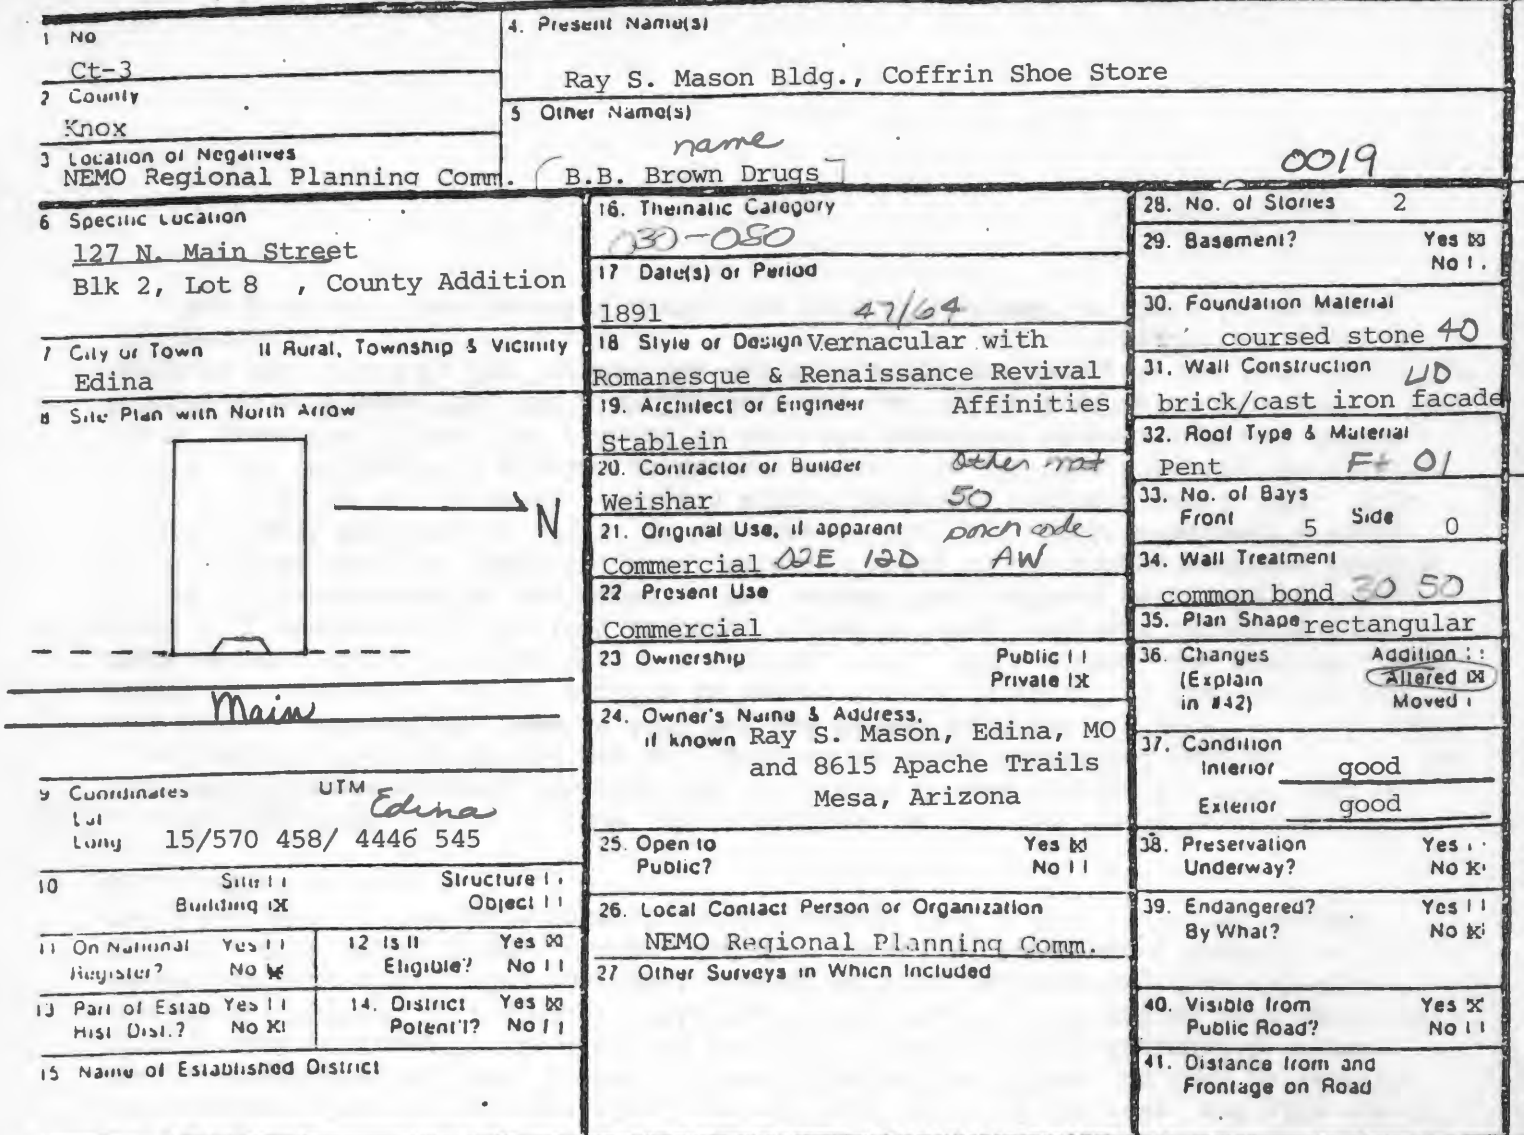 1 No
Ct-3
2 County
Knox
3 Location of Negatives
NEMO Regional Planning Comm.
4. Present Name(s)
Ray S. Mason Bldg., Coffrin Shoe Store
5 Other Name(s)
name
B.B. Brown Drugs
0019
6 Specific Location
127 N. Main Street
Blk 2, Lot 8 , County Addition
7 City or Town If Rural, Township & Vicinity
Edina
8 Site Plan with North Arrow
N
Main
9 Coordinates UTM
Edina
Lat
Long 15/570 458/ 4446 545
10 Site [ ] Structure [ ]
Building [X] Object [ ]
11 On National Yes [ ]
Register? No [X]
12 Is It Yes [X]
Eligible? No [ ]
13 Part of Estab Yes [ ]
Hist Dist.? No [X]
14. District Yes [X]
Potent'l? No [ ]
15 Name of Established District
16. Thematic Category
030-080
17 Date(s) or Period
1891 47/64
18 Style or Design Vernacular with
Romanesque & Renaissance Revival
19. Architect or Engineer Affinities
Stablein
20. Contractor or Builder other mat
Weishar 50
21. Original Use, if apparent porch code
Commercial 02E 12D AW
22 Present Use
Commercial
23 Ownership Public [ ]
Private [X]
24. Owner's Name & Address,
if known Ray S. Mason, Edina, MO
and 8615 Apache Trails
Mesa, Arizona
25. Open to Yes [X]
Public? No [ ]
26. Local Contact Person or Organization
NEMO Regional Planning Comm.
27 Other Surveys in Which Included
28. No. of Stories 2
29. Basement? Yes [X]
No [ ]
30. Foundation Material
coursed stone 40
31. Wall Construction UD
brick/cast iron facade
32. Roof Type & Material
Pent Ft 01
33. No. of Bays
Front 5 Side 0
34. Wall Treatment
common bond 30 50
35. Plan Shape rectangular
36. Changes Addition [ ]
(Explain Altered [X]
in #42) Moved [ ]
37. Condition
Interior good
Exterior good
38. Preservation Yes [ ]
Underway? No [X]
39. Endangered? Yes [ ]
By What? No [X]
40. Visible from Yes [X]
Public Road? No [ ]
41. Distance from and
Frontage on Road